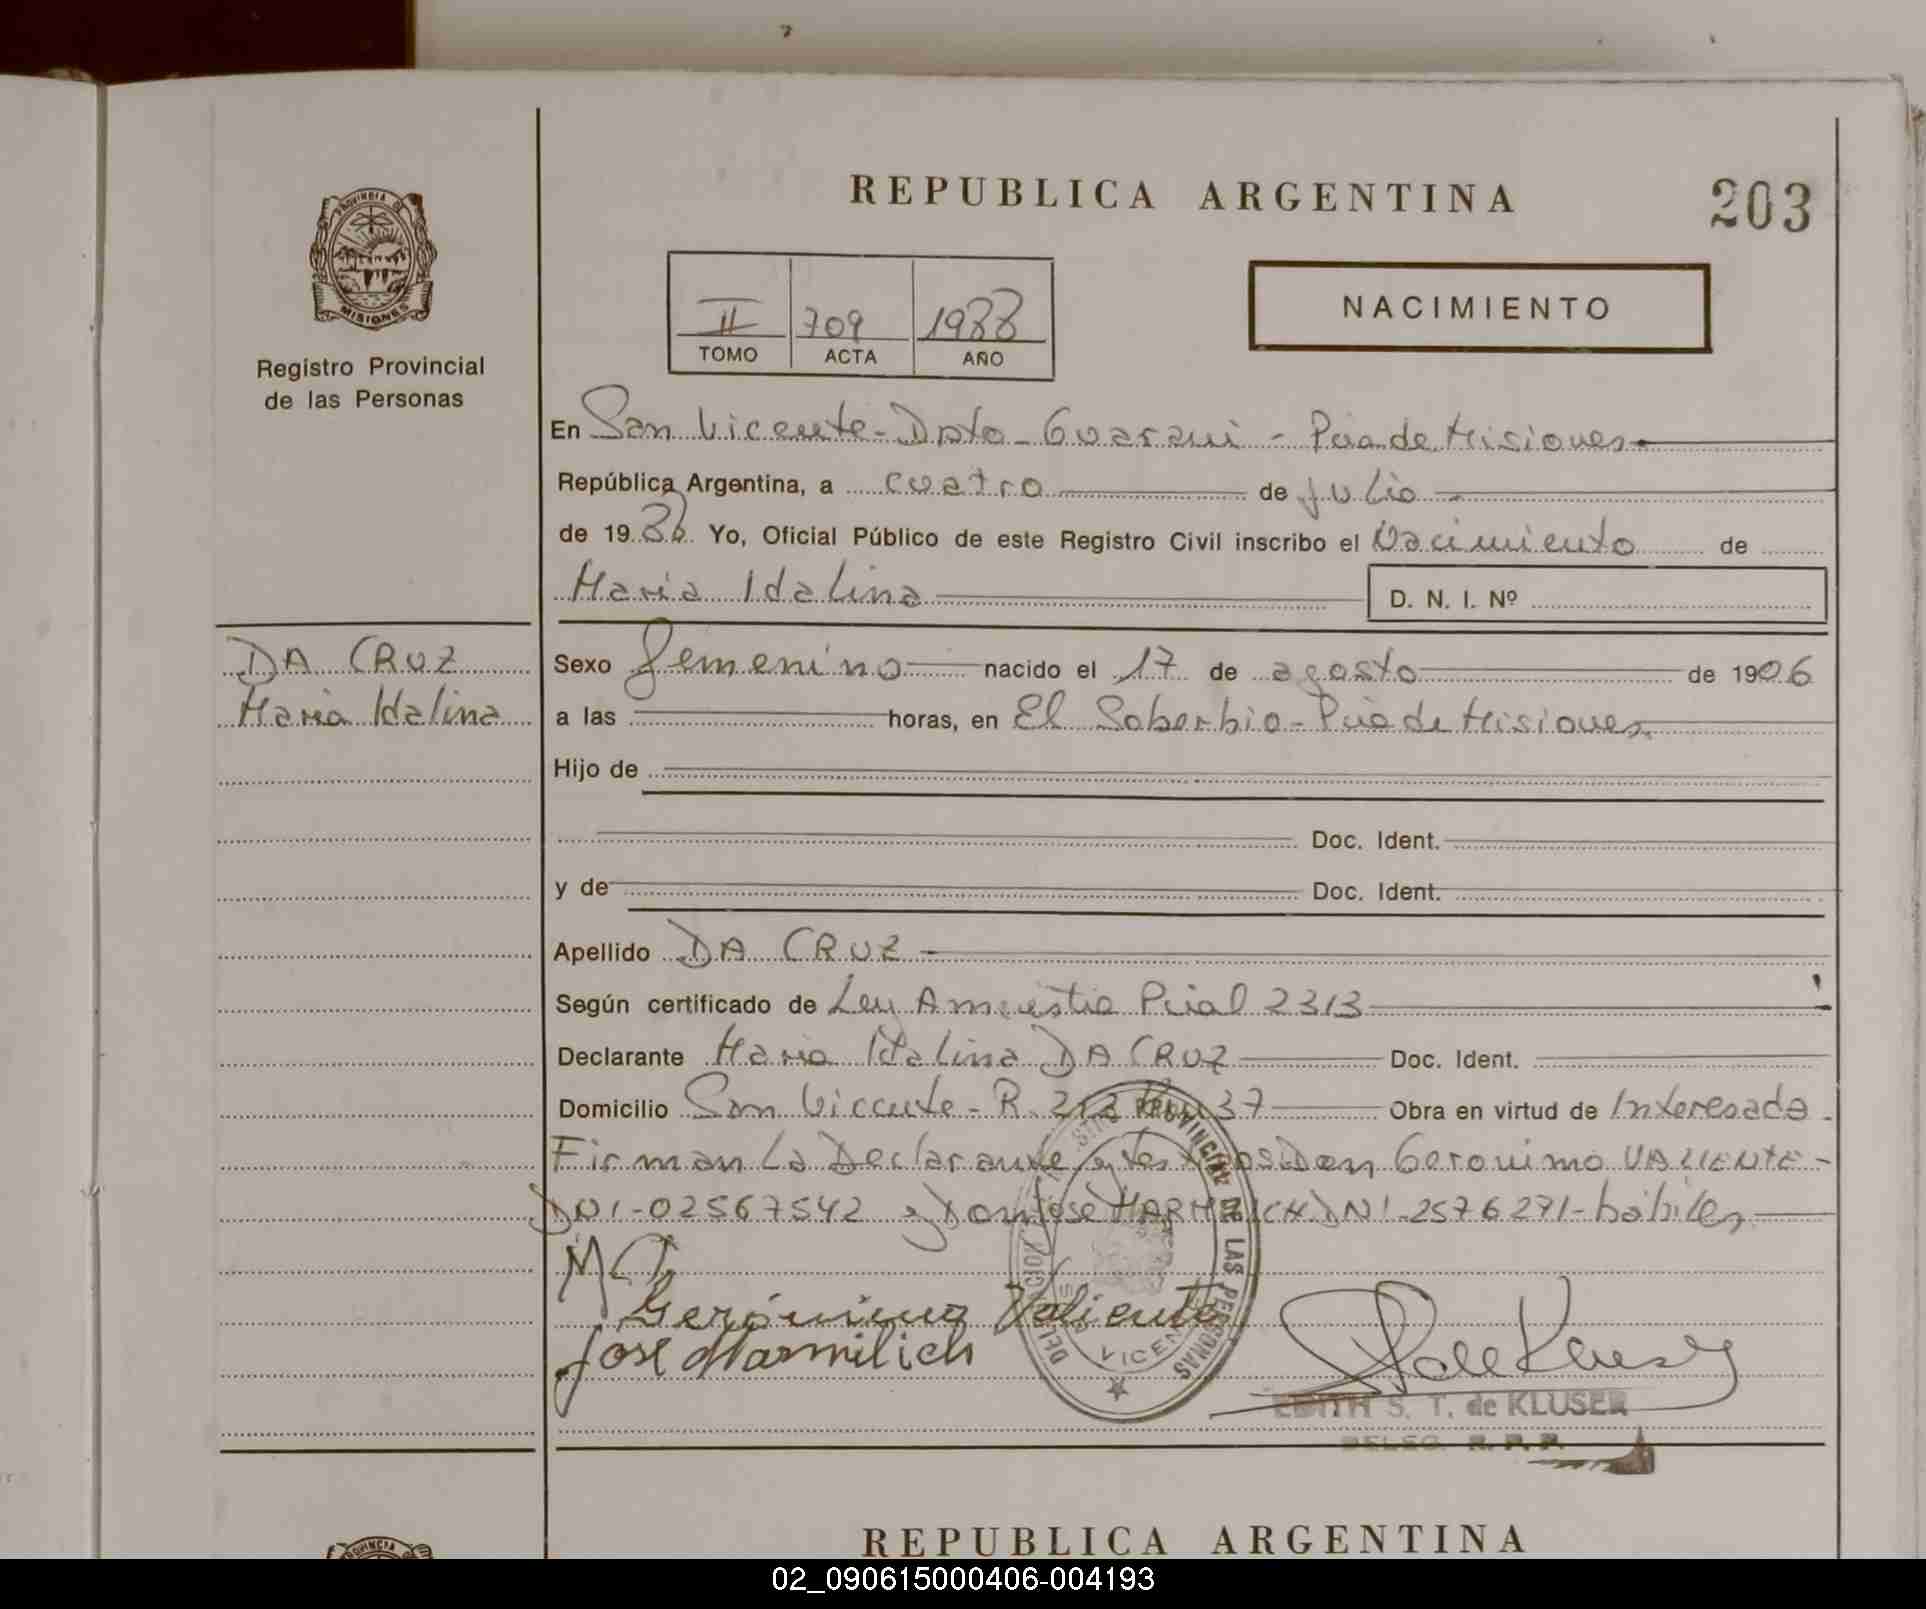 REPUBLICA ARGENTINA
203
PROVINCIA DE
MISIONES
Registro Provincial
de las Personas
II 709 1988
TOMO ACTA AÑO
NACIMIENTO
En San Vicente - Dpto - Guarani - Pcia de Misiones
República Argentina, a cuatro de Julio
de 1988 Yo, Oficial Público de este Registro Civil inscribo el Nacimiento de
Maria Idalina D. N. I. Nº
DA CRUZ
Maria Idalina
Sexo femenino nacido el 17 de agosto de 1906
a las horas, en El Soberbio - Pcia de Misiones
Hijo de
Doc. Ident.
y de Doc. Ident.
Apellido DA CRUZ
Según certificado de Ley Amnistia Pcial 2313
Declarante Maria Idalina DA CRUZ Doc. Ident.
Domicilio San Vicente - R. 212 Km 37 Obra en virtud de Interesada
Firman la Declarante y testigos Don Geronimo VALIENTE -
DNI - 02567542 y Don José MARMILICH DNI - 2576271 - hábiles
Gerónimo Valiente
José Marmilich
PROVINCIAL DE LAS PERSONAS
VICENTE
EDITH S. T. de KLUSER
DELEG. R. P. P.
REPUBLICA ARGENTINA
PROVINCIA
02_090615000406-004193